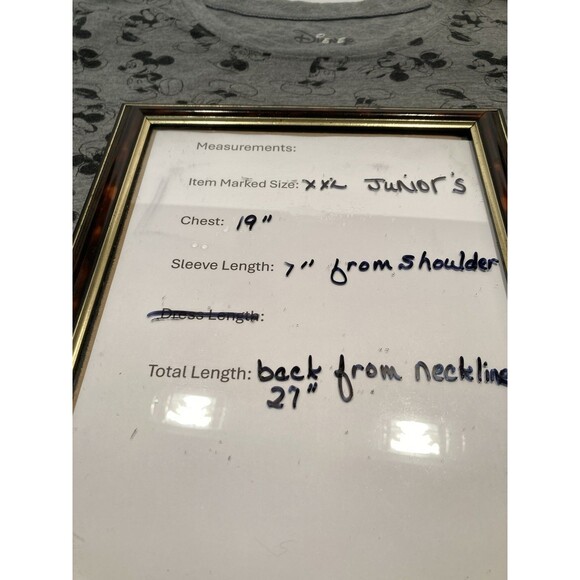 Disney
Measurements:
Item Marked Size: XXL JUNIOR'S
Chest: 19"
Sleeve Length: 7" from shoulder
Dress Length:
Total Length: back from neckline
27"